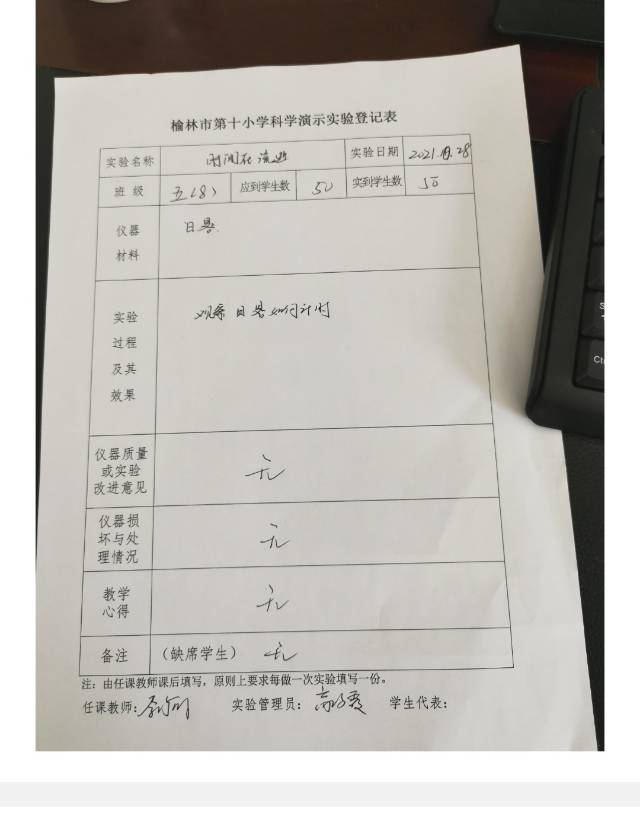 榆林市第十小学科学演示实验登记表
实验名称 时间在流逝 实验日期 2021.10.28
班 级 五(8) 应到学生数 50 实到学生数 50
仪器
材料
日晷.
实验
过程
及其
效果
观察日晷如何计时
仪器质量
或实验
改进意见
无
仪器损
坏与处
理情况
无
教学
心得
无
备注 (缺席学生) 无
注：由任课教师课后填写，原则上要求每做一次实验填写一份。
任课教师： 实验管理员： 学生代表：